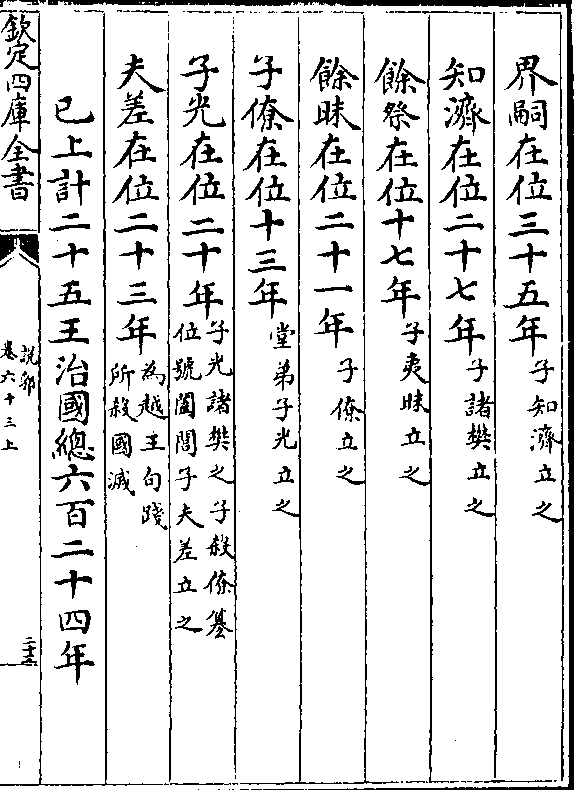 界嗣在位三十五年子知濟立之
知濟在位二十七年子諸樊立之
餘祭在位十七年子夷昧立之
餘昧在位二十一年子僚立之
子僚在位十三年堂弟子光立之
子光在位二十年子光諸樊之子殺僚簒
位號闔閭子夫差立之
夫差在位二十三年為越王句踐
所殺國滅
已上計二十五王治國總六百二十四年
欽定四庫全書
說郛
卷六十三上